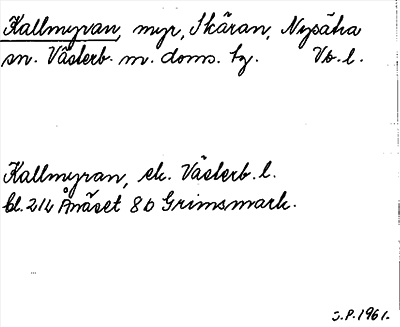 Kallmyran, myr, Skäran, Nysätra
sn. Västerb. m. doms. tg. Vb. l.
Kallmyran, ek. Västerb. l.
bl. 214 Ånäset 8b Grimsmark.
S.P. 1961.